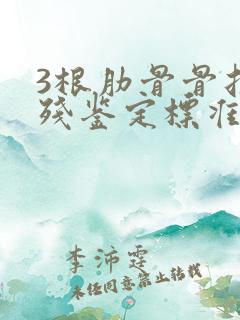 3根肋骨骨折
残鉴定标准
李沛霆
未经同意禁止转载